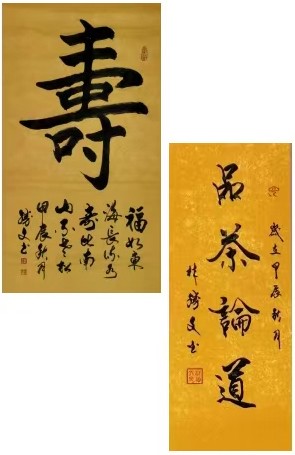 壽
福如東
海長流水
壽比南
山不老松
甲辰秋月
文书
歲在甲辰秋月
品茶論道
文书